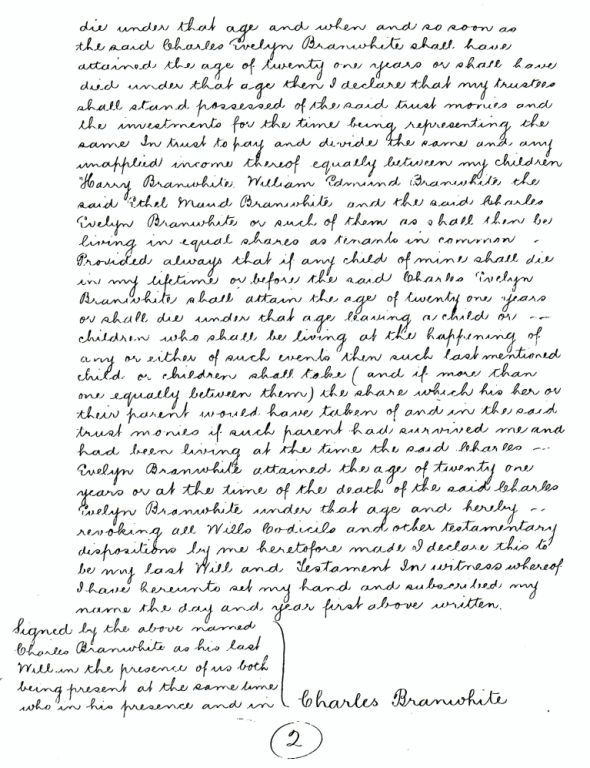 die under that age and when and so soon as
the said Charles Evelyn Branwhite shall have
attained the age of twenty one years or shall have
died under that age then I declare that my trustees
shall stand possessed of the said trust monies and
the investments for the time being representing the
same In trust to pay and divide the same and any
unapplied income thereof equally between my children
Harry Branwhite William Edmund Branwhite the
said Ethel Maud Branwhite and the said Charles
Evelyn Branwhite or such of them as shall then be
living in equal shares as tenants in common -
Provided always that if any child of mine shall die
in my lifetime or before the said Charles Evelyn
Branwhite shall attain the age of twenty one years
or shall die under that age leaving a child or --
children who shall be living at the happening of
any or either of such events then such last mentioned
child or children shall take (and if more than
one equally between them) the share which his her or
their parent would have taken of and in the said
trust monies if such parent had survived me and
had been living at the time the said Charles --
Evelyn Branwhite attained the age of twenty one
years or at the time of the death of the said Charles
Evelyn Branwhite under that age and hereby --
revoking all Wills Codicils and other testamentary
dispositions by me heretofore made I declare this to
be my last Will and Testament In witness whereof
I have hereunto set my hand and subscribed my
name the day and year first above written.
Signed by the above named
Charles Branwhite as his last
Will in the presence of us both
being present at the same time
who in his presence and in
Charles Branwhite
2